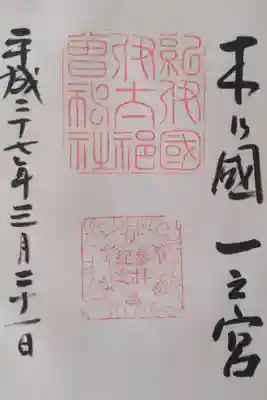 木乃國 一之宮
紀伊國
伊太祁
曽神社
参拝
平成二十七年三月二十一日